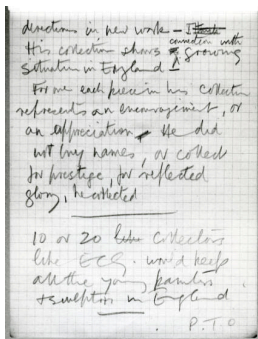 directions in new work – I think
His collection shows connection with growing
situation in England –
For me each piece in his collection
represents an encouragement, or
an appreciation He did
not buy names, or collect
for prestige, for reflected
glory, he collected
10 or 20 like collectors
like ECG. would keep
all the young painters
+ sculptors in England
P.T.O